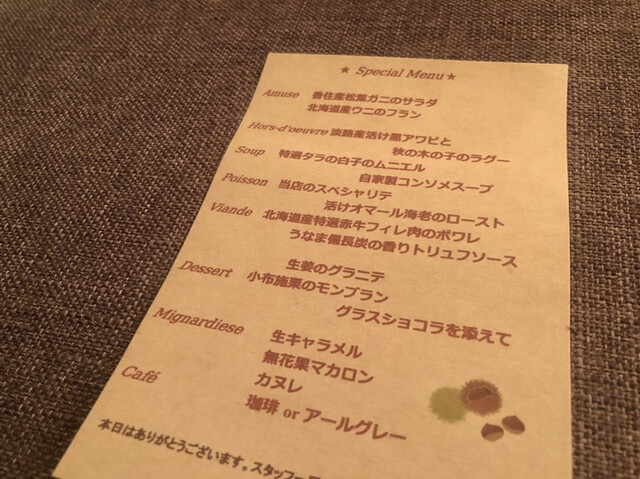 ★ Special Menu ★
Amuse 香住産松葉ガニのサラダ
北海道産ウニのフラン
Hors-d'oeuvre 淡路産活け黒アワビと
秋の木の子のラグー
Soup 特選タラの白子のムニエル
自家製コンソメスープ
Poisson 当店のスペシャリテ
活けオマール海老のロースト
Viande 北海道産特選赤牛フィレ肉のポワレ
うなま備長炭の香りトリュフソース
生姜のグラニテ
Dessert 小布施栗のモンブラン
グラスショコラを添えて
Mignardiese 生キャラメル
無花果マカロン
カヌレ
Café 珈琲 or アールグレー
本日はありがとうございます。スタッフ一